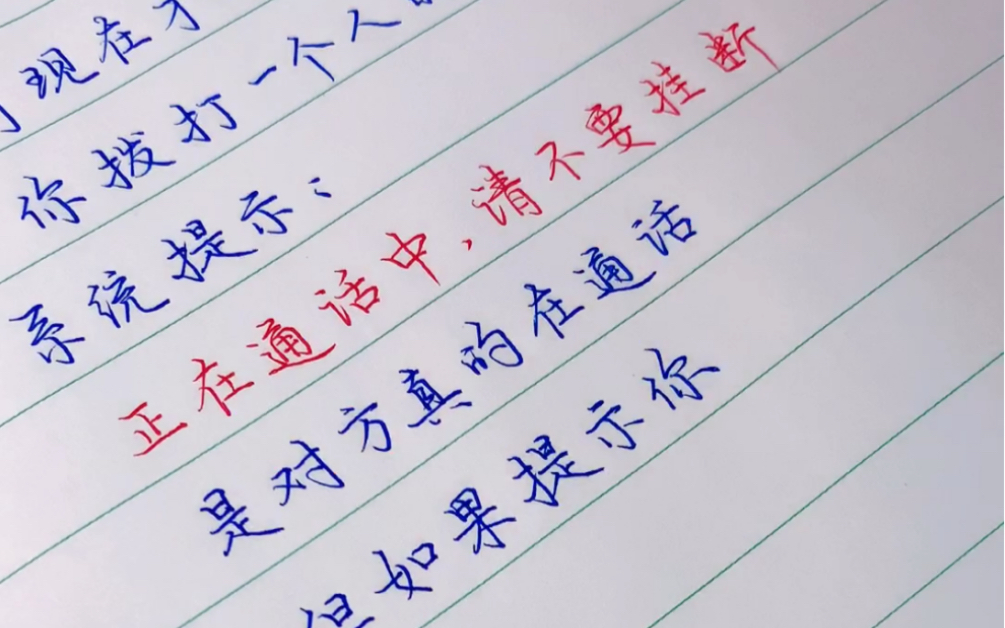 现在才
你拨打一个人
系统提示：
正在通话中，请不要挂断
是对方真的在通话
但如果提示你